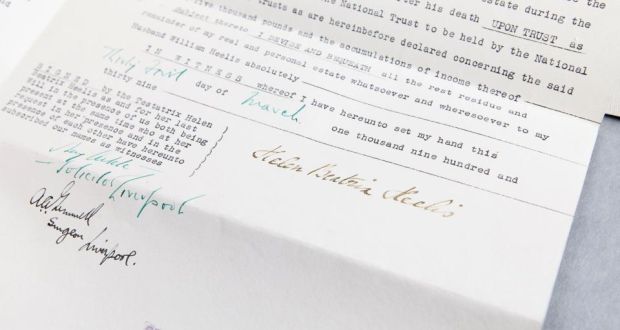 estate during the
after his death UPON TRUST as
the National Trust to be held by the National
trusts as are hereinbefore declared concerning the said
five thousand pounds and the accumulations of income thereof
Subject thereto I DEVISE AND BEQUEATH all the rest residue and
remainder of my real and personal estate whatsoever and wheresoever to my
Husband William Heelis absolutely
IN WITNESS whereof I have hereunto set my hand this
Thirty First day of March one thousand nine hundred and
thirty nine
SIGNED by the Testatrix Helen
Beatrix Heelis as and for her last
Will in the presence of us both being
present at the same time who at her
request in her presence and in the
presence of each other have hereunto
subscribe our names as witnesses
Helen Beatrix Heelis
Solicitor Liverpool
Surgeon Liverpool.